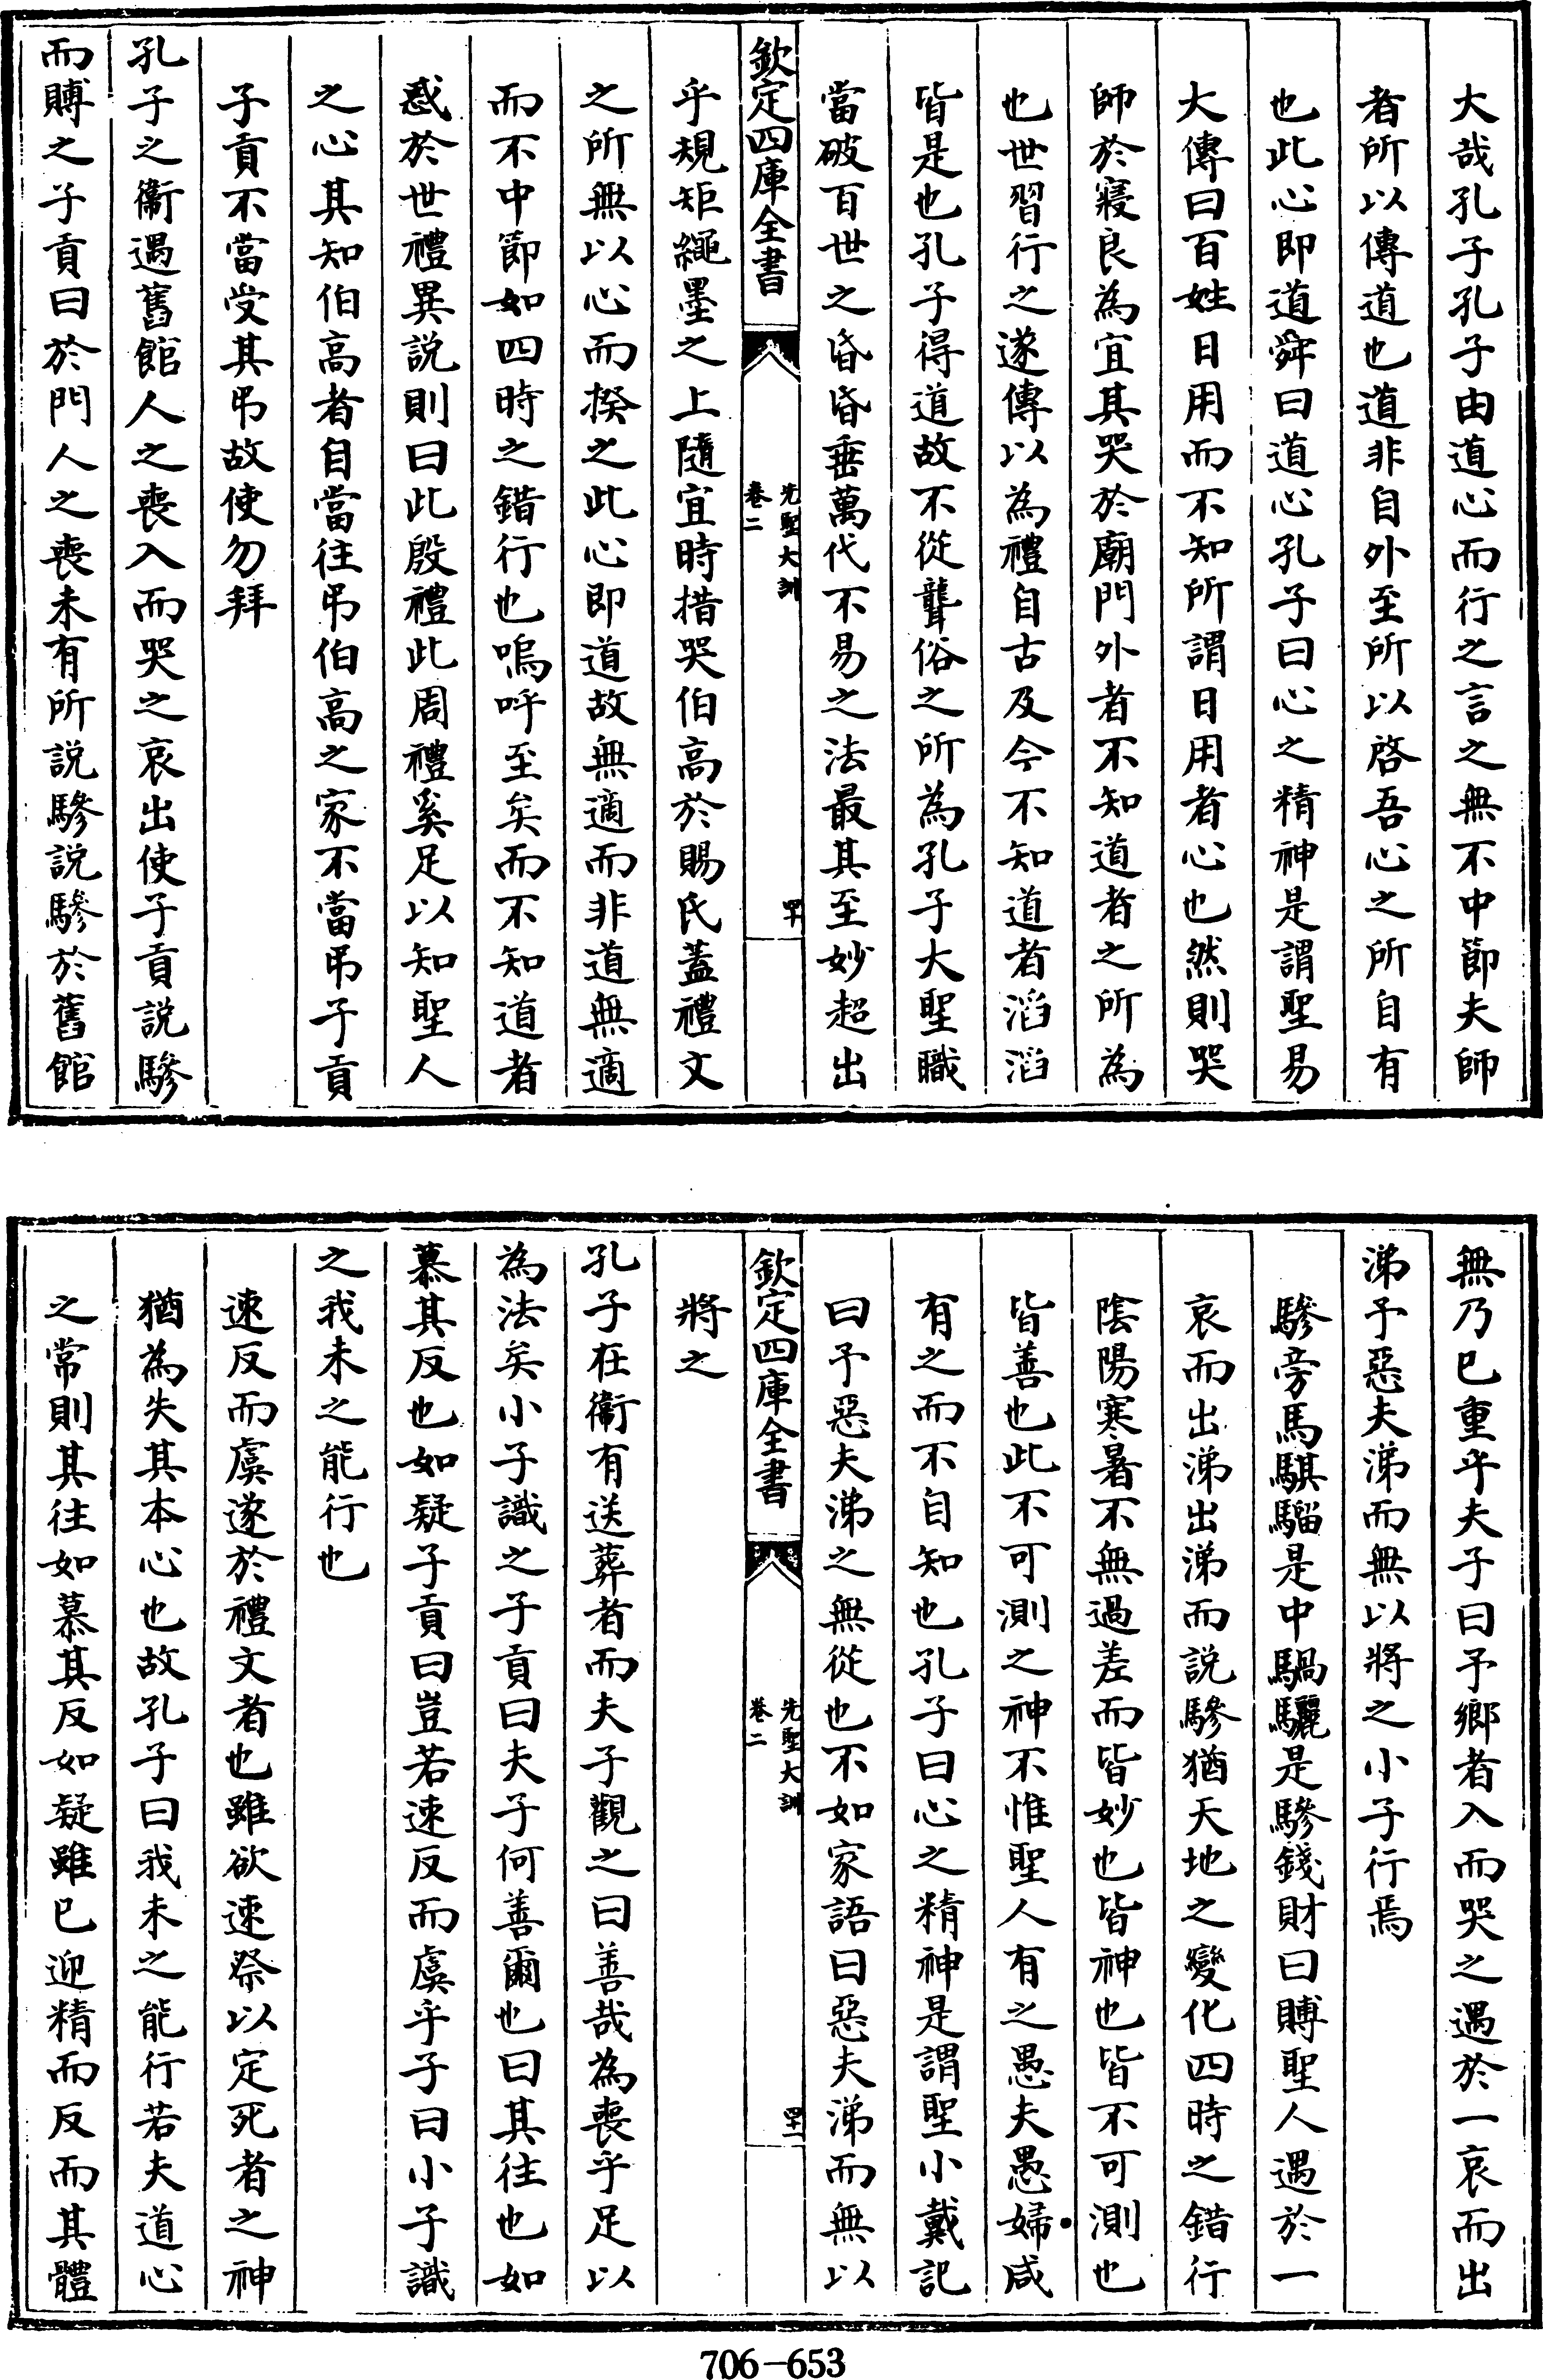 大哉孔子孔子由道心而行之言之無不中節夫師
者所以傳道也道非自外至所以啓吾心之所自有
也此心即道舜曰道心孔子曰心之精神是謂聖易
大傳曰百姓日用而不知所謂日用者心也然則哭
師於寢良為宜其哭於廟門外者不知道者之所為
也世習行之遂傳以為禮自古及今不知道者滔滔
皆是也孔子得道故不從聾俗之所為孔子大聖職
當破百世之昏昏垂萬代不易之法最其至妙超出
欽定四庫全書
先聖大訓
卷二
四十
乎規矩繩墨之上隨宜時措哭伯高於賜氏蓋禮文
之所無以心而揆之此心即道故無適而非道無適
而不中節如四時之錯行也嗚呼至矣而不知道者
惑於世禮異説則曰此殷禮此周禮奚足以知聖人
之心其知伯高者自當往弔伯高之家不當弔子貢
子貢不當受其弔故使勿拜
孔子之衛遇舊館人之喪入而哭之哀出使子貢説驂
而賻之子貢曰於門人之喪未有所説驂説驂於舊館
無乃已重乎夫子曰予鄉者入而哭之遇於一哀而出
涕予惡夫涕而無以將之小子行焉
驂旁馬騏騮是中騧驪是驂錢財曰賻聖人遇於一
哀而出涕出涕而説驂猶天地之變化四時之錯行
陰陽寒暑不無過差而皆妙也皆神也皆不可測也
皆善也此不可測之神不惟聖人有之愚夫愚婦咸
有之而不自知也孔子曰心之精神是謂聖小戴記
曰予惡夫涕之無從也不如家語曰惡夫涕而無以
欽定四庫全書
先聖大訓
卷二
四十一
將之
孔子在衛有送葬者而夫子觀之曰善哉為喪乎足以
為法矣小子識之子貢曰夫子何善爾也曰其往也如
慕其反也如疑子貢曰豈若速反而虞乎子曰小子識
之我未之能行也
速反而虞遂於禮文者也雖欲速祭以定死者之神
猶為失其本心也故孔子曰我未之能行若夫道心
之常則其往如慕其反如疑雖已迎精而反而其體
706-653